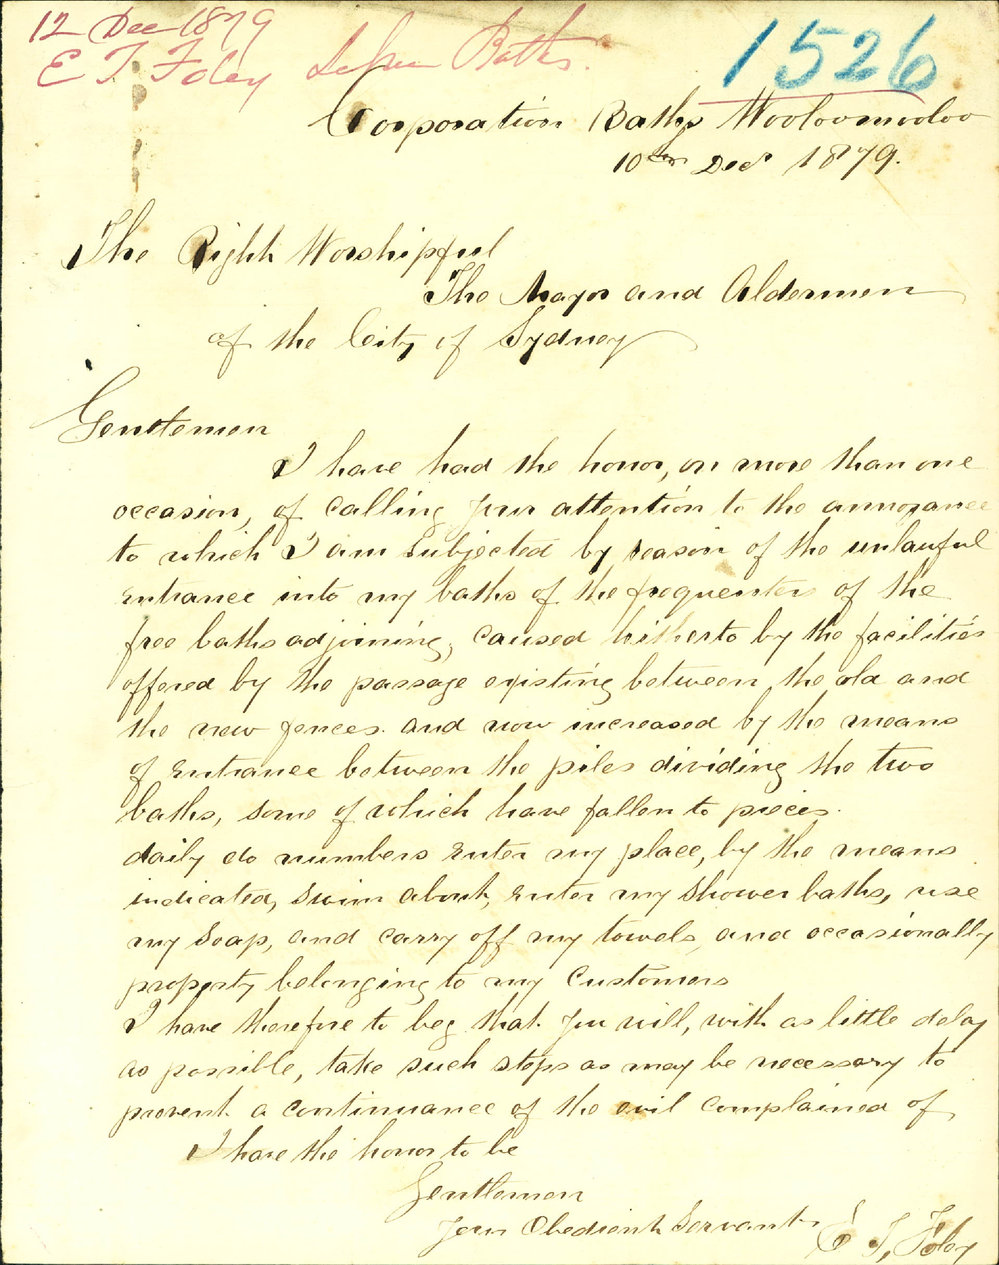 12 Dec 1879
1526
E T Foley Baths
Corporation Baths Wooloomooloo
10th Decr 1879.
The Right Worshipful
The Mayor and Aldermen
of the City of Sydney
Gentlemen
I have had the honor, on more than one
occasion, of calling your attention to the annoyance
to which I am subjected by reason of the unlawful
entrance into my baths of the frequenters of the
free baths adjoining, caused hitherto by the facilities
offered by the passage existing between the old and
the new fences. and now increased by the means
of entrance between the piles dividing the two
baths, some of which have fallen to pieces.
daily do numbers enter my place, by the means
indicated, swim about, enter my shower baths, use
my soap, and carry off my towels and occasionally
property belonging to my customers
I have therefore to beg that you will, with as little delay
as possible, take such steps as may be necessary to
prevent a continuance of the evil complained of
I have the honor to be
Gentlemen
Your Obedient Servant
E T, Foley